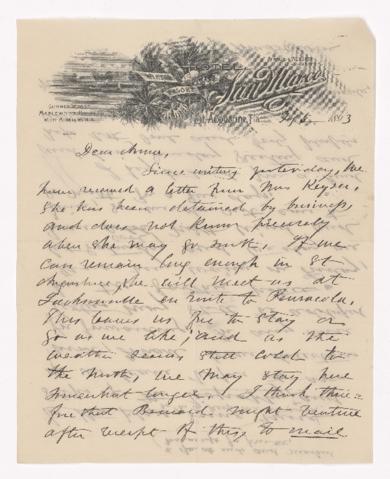 HOTEL
San Marco
St. Augustine, Fla.
1893
Dear Anna,
Since writing yesterday, we
have received a letter from Mrs Keyser.
She has been detained by business,
and does not know precisely
when she may go South. If we
can remain long enough in St
Augustine, she will meet us at
Jacksonville en route to Pensacola.
This leaves us free to stay or
go as we like; and as the
weather seems still cold to
the North, we may stay here
somewhat longer. I think there-
fore that Bernard might venture
after receipt of this to mail